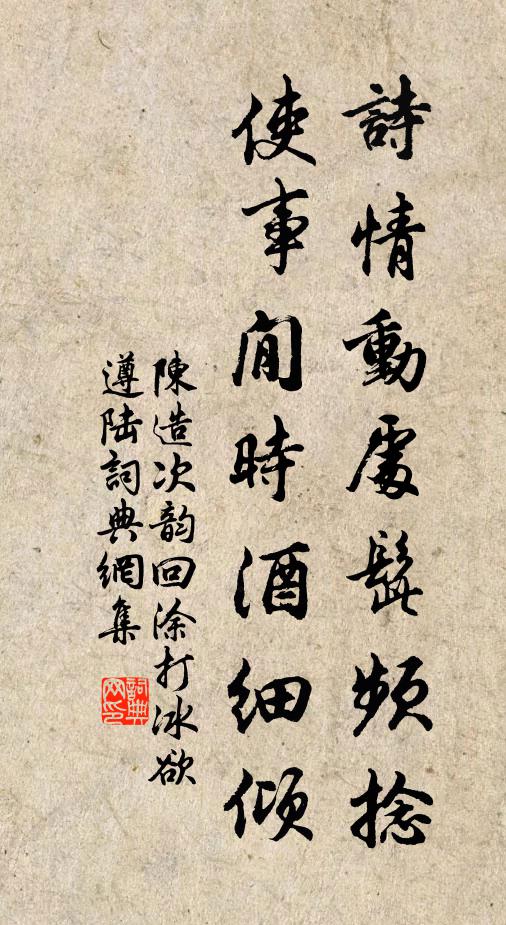 詩情動處髭頻捻
使事閒時酒細傾
陳造次韵回涂打冰欲
遵陆詞典網集
詞典网印